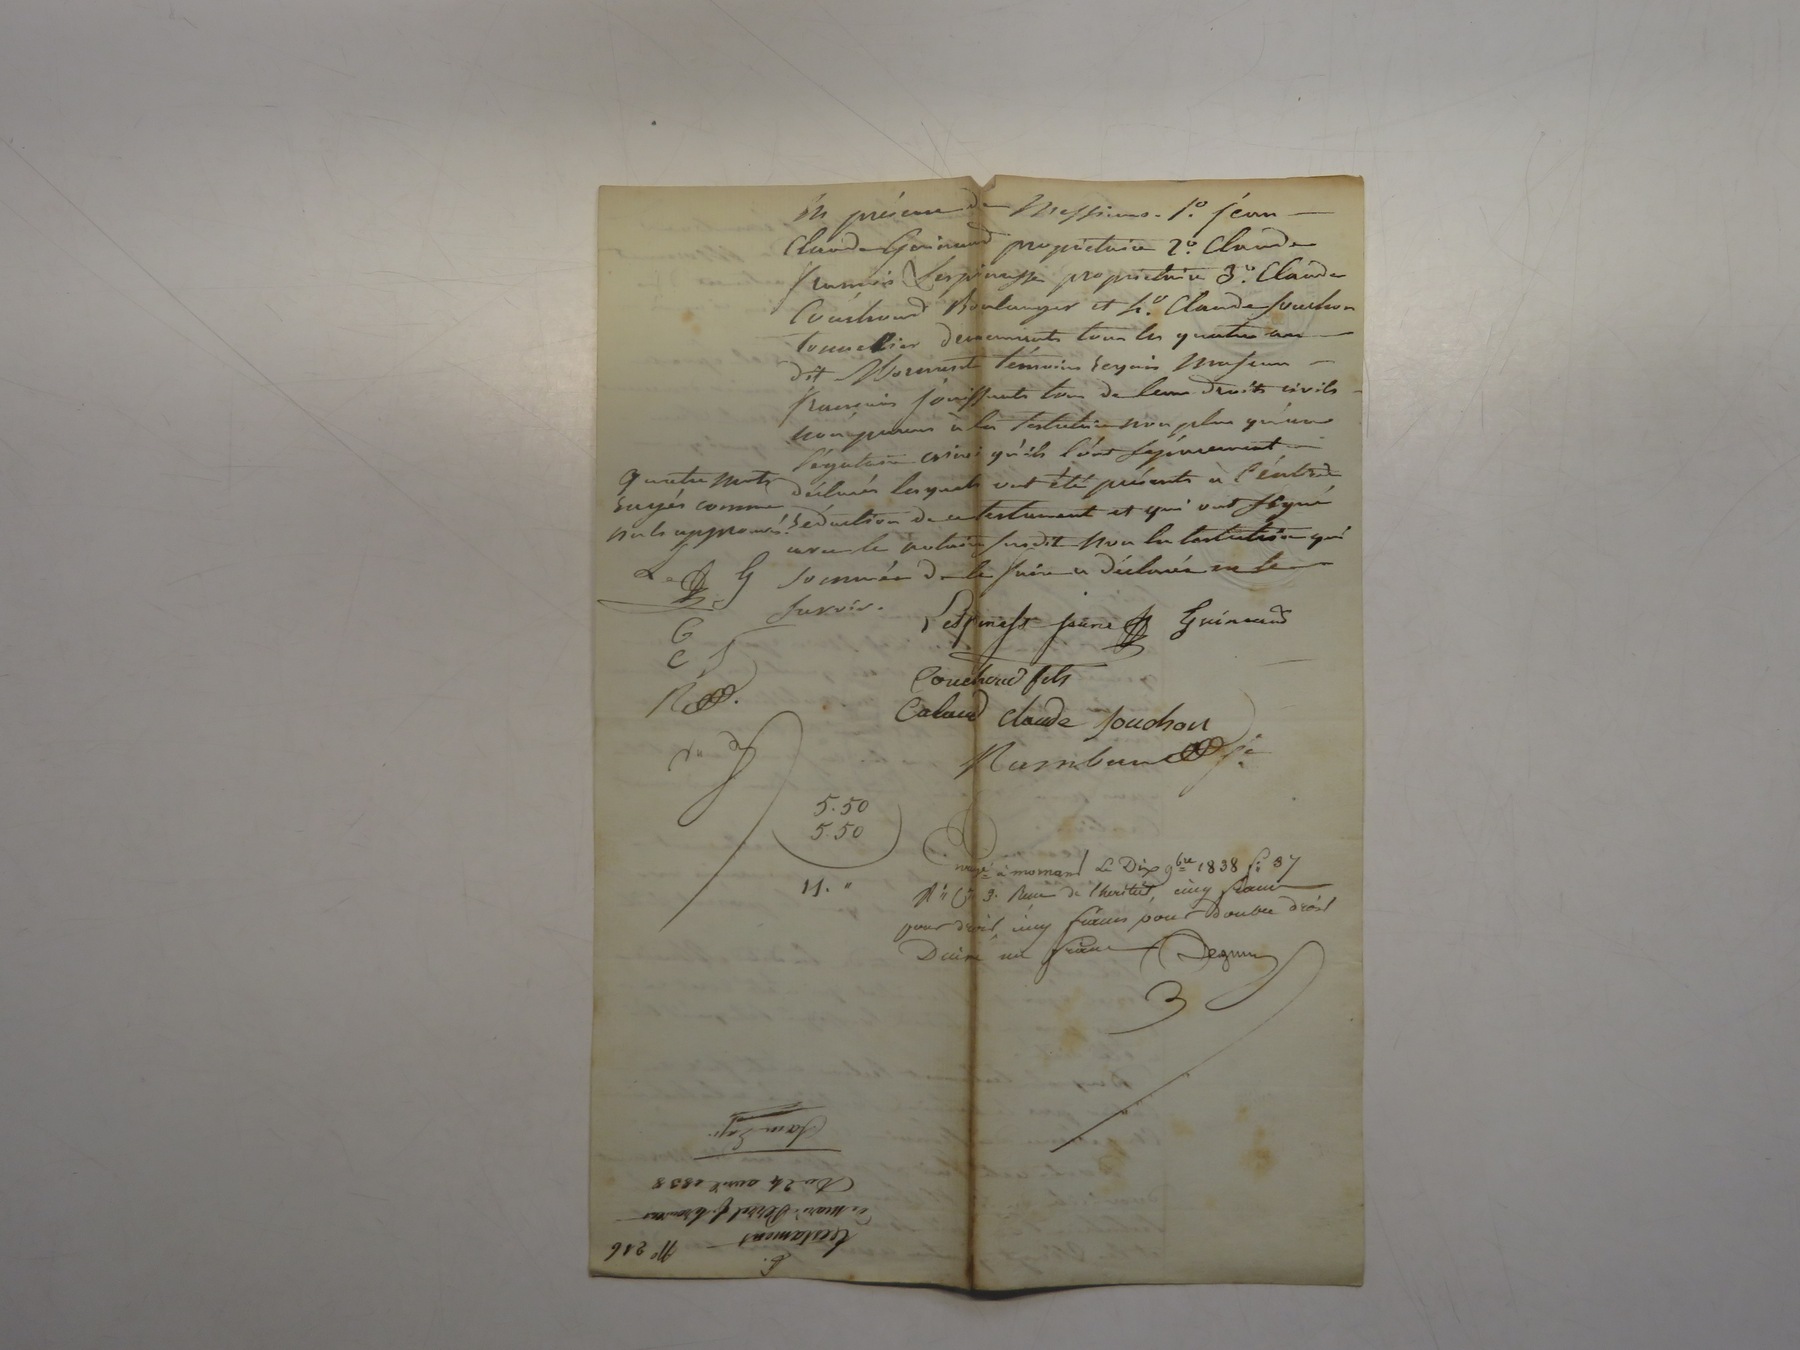 En présence de Messieurs. 1.° jean
Claude Guinand propriétaire 2.° Claude
francois Lespinasse propriétaire 3.° Claude
Couchoud Boulanger et 4.° Claude Souchon
tonnellier demeurants tous les quatre au
dit Mornant témoins requis Majeurs
francais jouissants tous de leurs droits civils
non parens à la testatrice non plus qu'au
légataire ainsi qu'ils l'ont séparement
déclarés lesquels ont été présents à l'entière
rédaction de ce testament et qui ont signé
avec le notaire susdit non la testatrice qui
sommée de le faire a déclarée ne le
savoir.
quatre mots
rayés comme
nuls approuvés.
L. G
C
C S
R
Lespinasse jeune Guinand
Couchoud fils
Claude Souchon
Rambaud
5.50
5.50
11. "
à mornant Le Dix 9bre 1838 f° 37
R° C. 3. Reçu de l'heritier cinq francs
pour droit, cinq francs pour double droit
Decime un franc
N° 216
testament
Du 24 avril 1838